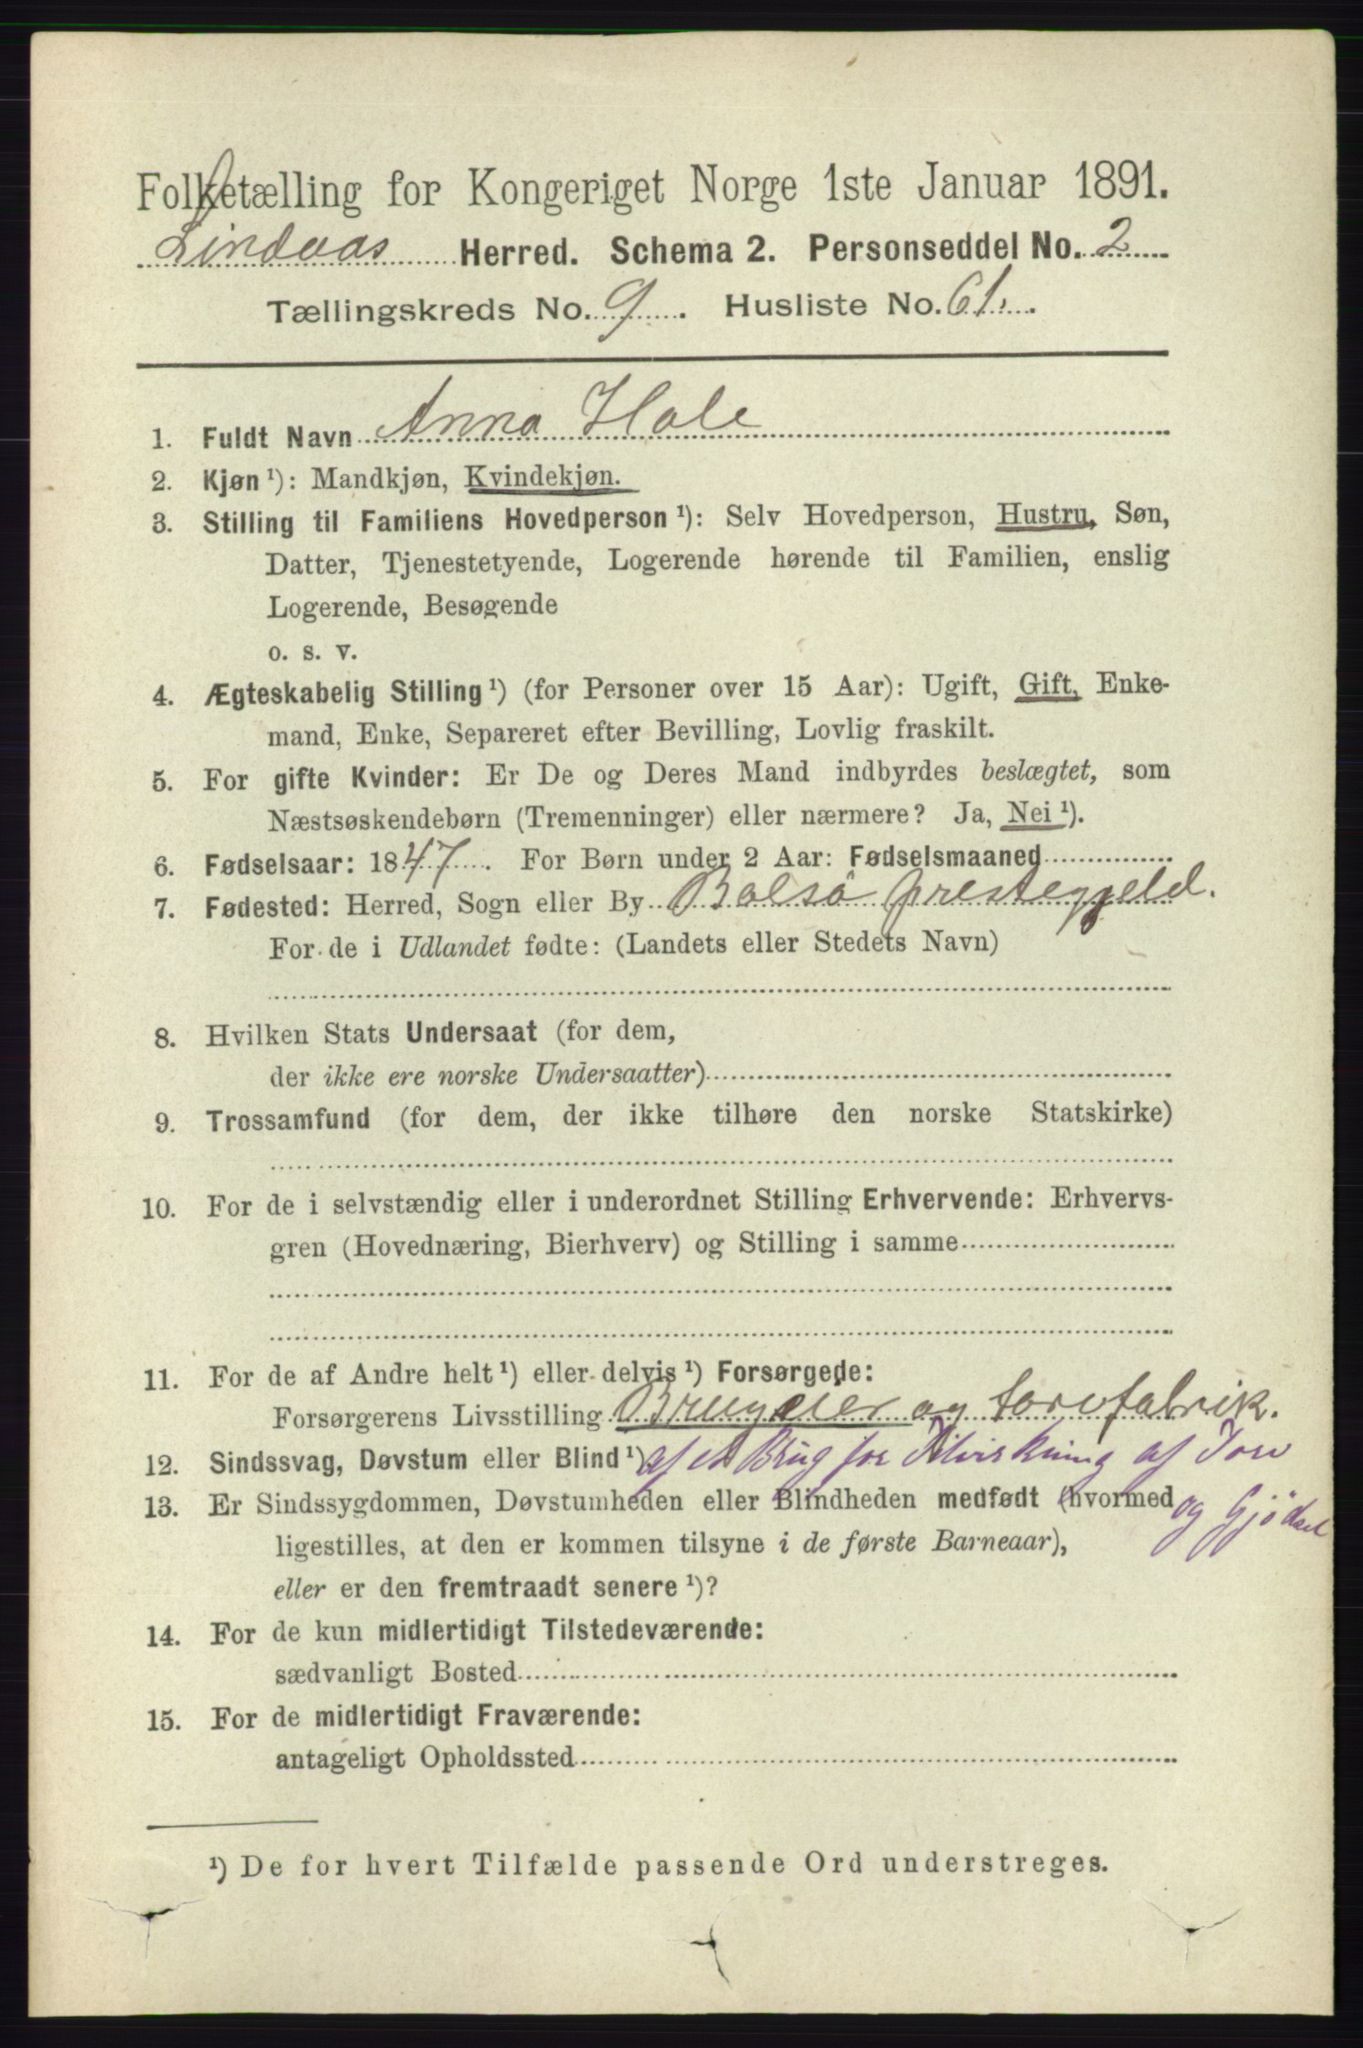 Folketælling for Kongeriget Norge 1ste Januar 1891.
Lindaas Herred. Schema 2. Personseddel No. 2
Tællingskreds No. 9. Husliste No. 61.
1. Fuldt Navn Anna Hole
2. Kjøn ¹): Mandkjøn, Kvindekjøn.
3. Stilling til Familiens Hovedperson ¹): Selv Hovedperson, Hustru, Søn,
Datter, Tjenestetyende, Logerende hørende til Familien, enslig
Logerende, Besøgende
o. s. v.
4. Ægteskabelig Stilling ¹) (for Personer over 15 Aar): Ugift, Gift, Enke-
mand, Enke, Separeret efter Bevilling, Lovlig fraskilt.
5. For gifte Kvinder: Er De og Deres Mand indbyrdes beslægtet, som
Næstsøskendebørn (Tremenninger) eller nærmere? Ja, Nei ¹).
6. Fødselsaar: 1847. For Børn under 2 Aar: Fødselsmaaned
7. Fødested: Herred, Sogn eller By Bolsö prestegjeld.
For de i Udlandet fødte: (Landets eller Stedets Navn)
8. Hvilken Stats Undersaat (for dem,
der ikke ere norske Undersaatter)
9. Trossamfund (for dem, der ikke tilhøre den norske Statskirke)
10. For de i selvstændig eller i underordnet Stilling Erhvervende: Erhvervs-
gren (Hovednæring, Bierhverv) og Stilling i samme
11. For de af Andre helt ¹) eller delvis ¹) Forsørgede:
Forsørgerens Livsstilling Brugeier og torvfabrik.
12. Sindssvag, Døvstum eller Blind ¹) af et Brug for Tilvirkning af Torv
13. Er Sindssygdommen, Døvstumheden eller Blindheden medfødt (hvormed og Gjödsel
ligestilles, at den er kommen tilsyne i de første Barneaar),
eller er den fremtraadt senere ¹)?
14. For de kun midlertidigt Tilstedeværende:
sædvanligt Bosted
15. For de midlertidigt Fraværende:
antageligt Opholdssted
¹) De for hvert Tilfælde passende Ord understreges.